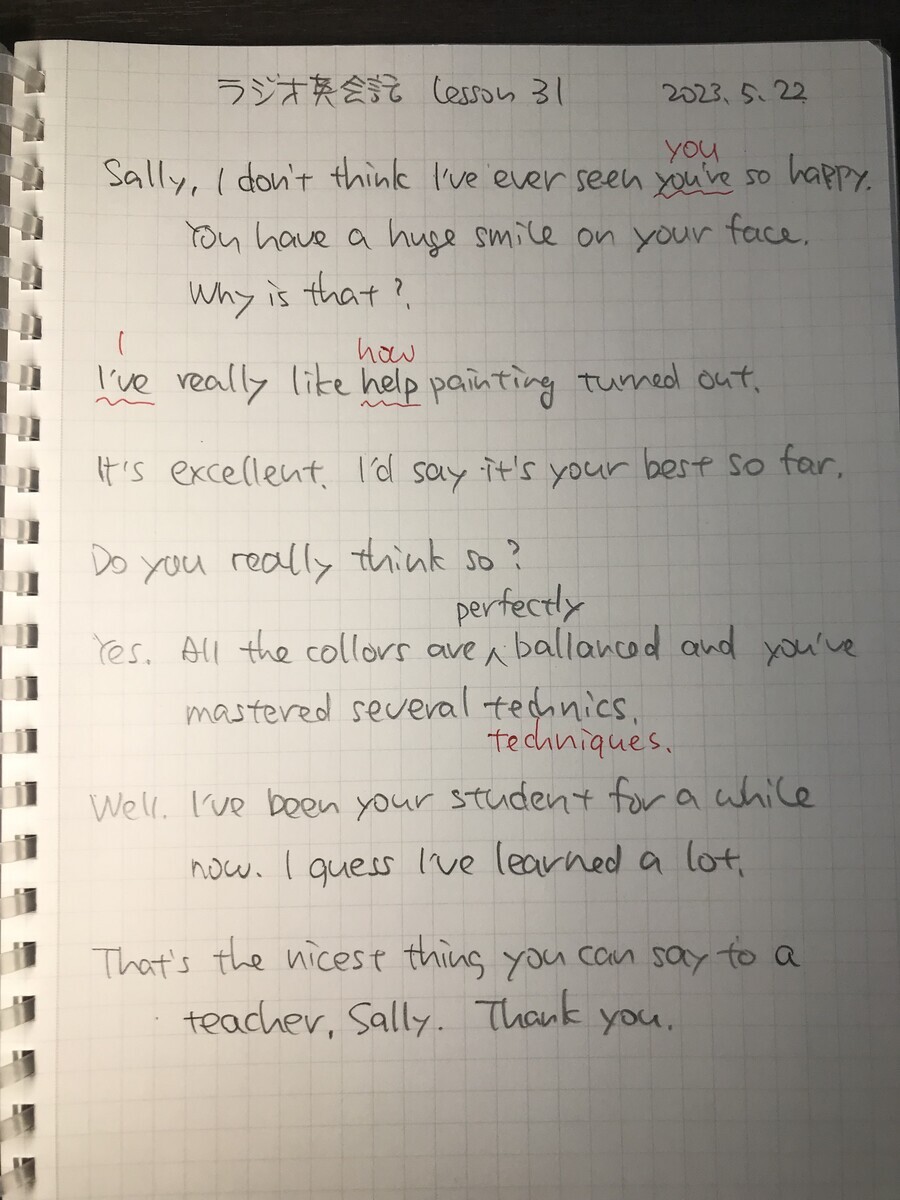 ラジオ英会話 Lesson 31 2023.5.22
you
Sally, I don't think I've ever seen you've so happy.
You have a huge smile on your face.
Why is that?
I how
I've really like help painting turned out.
It's excellent. I'd say it's your best so far.
Do you really think so?
perfectly
Yes. All the collors are ^ ballanced and you've
mastered several technics.
techniques.
Well. I've been your student for a while
now. I guess I've learned a lot.
That's the nicest thing you can say to a
teacher, Sally. Thank you.